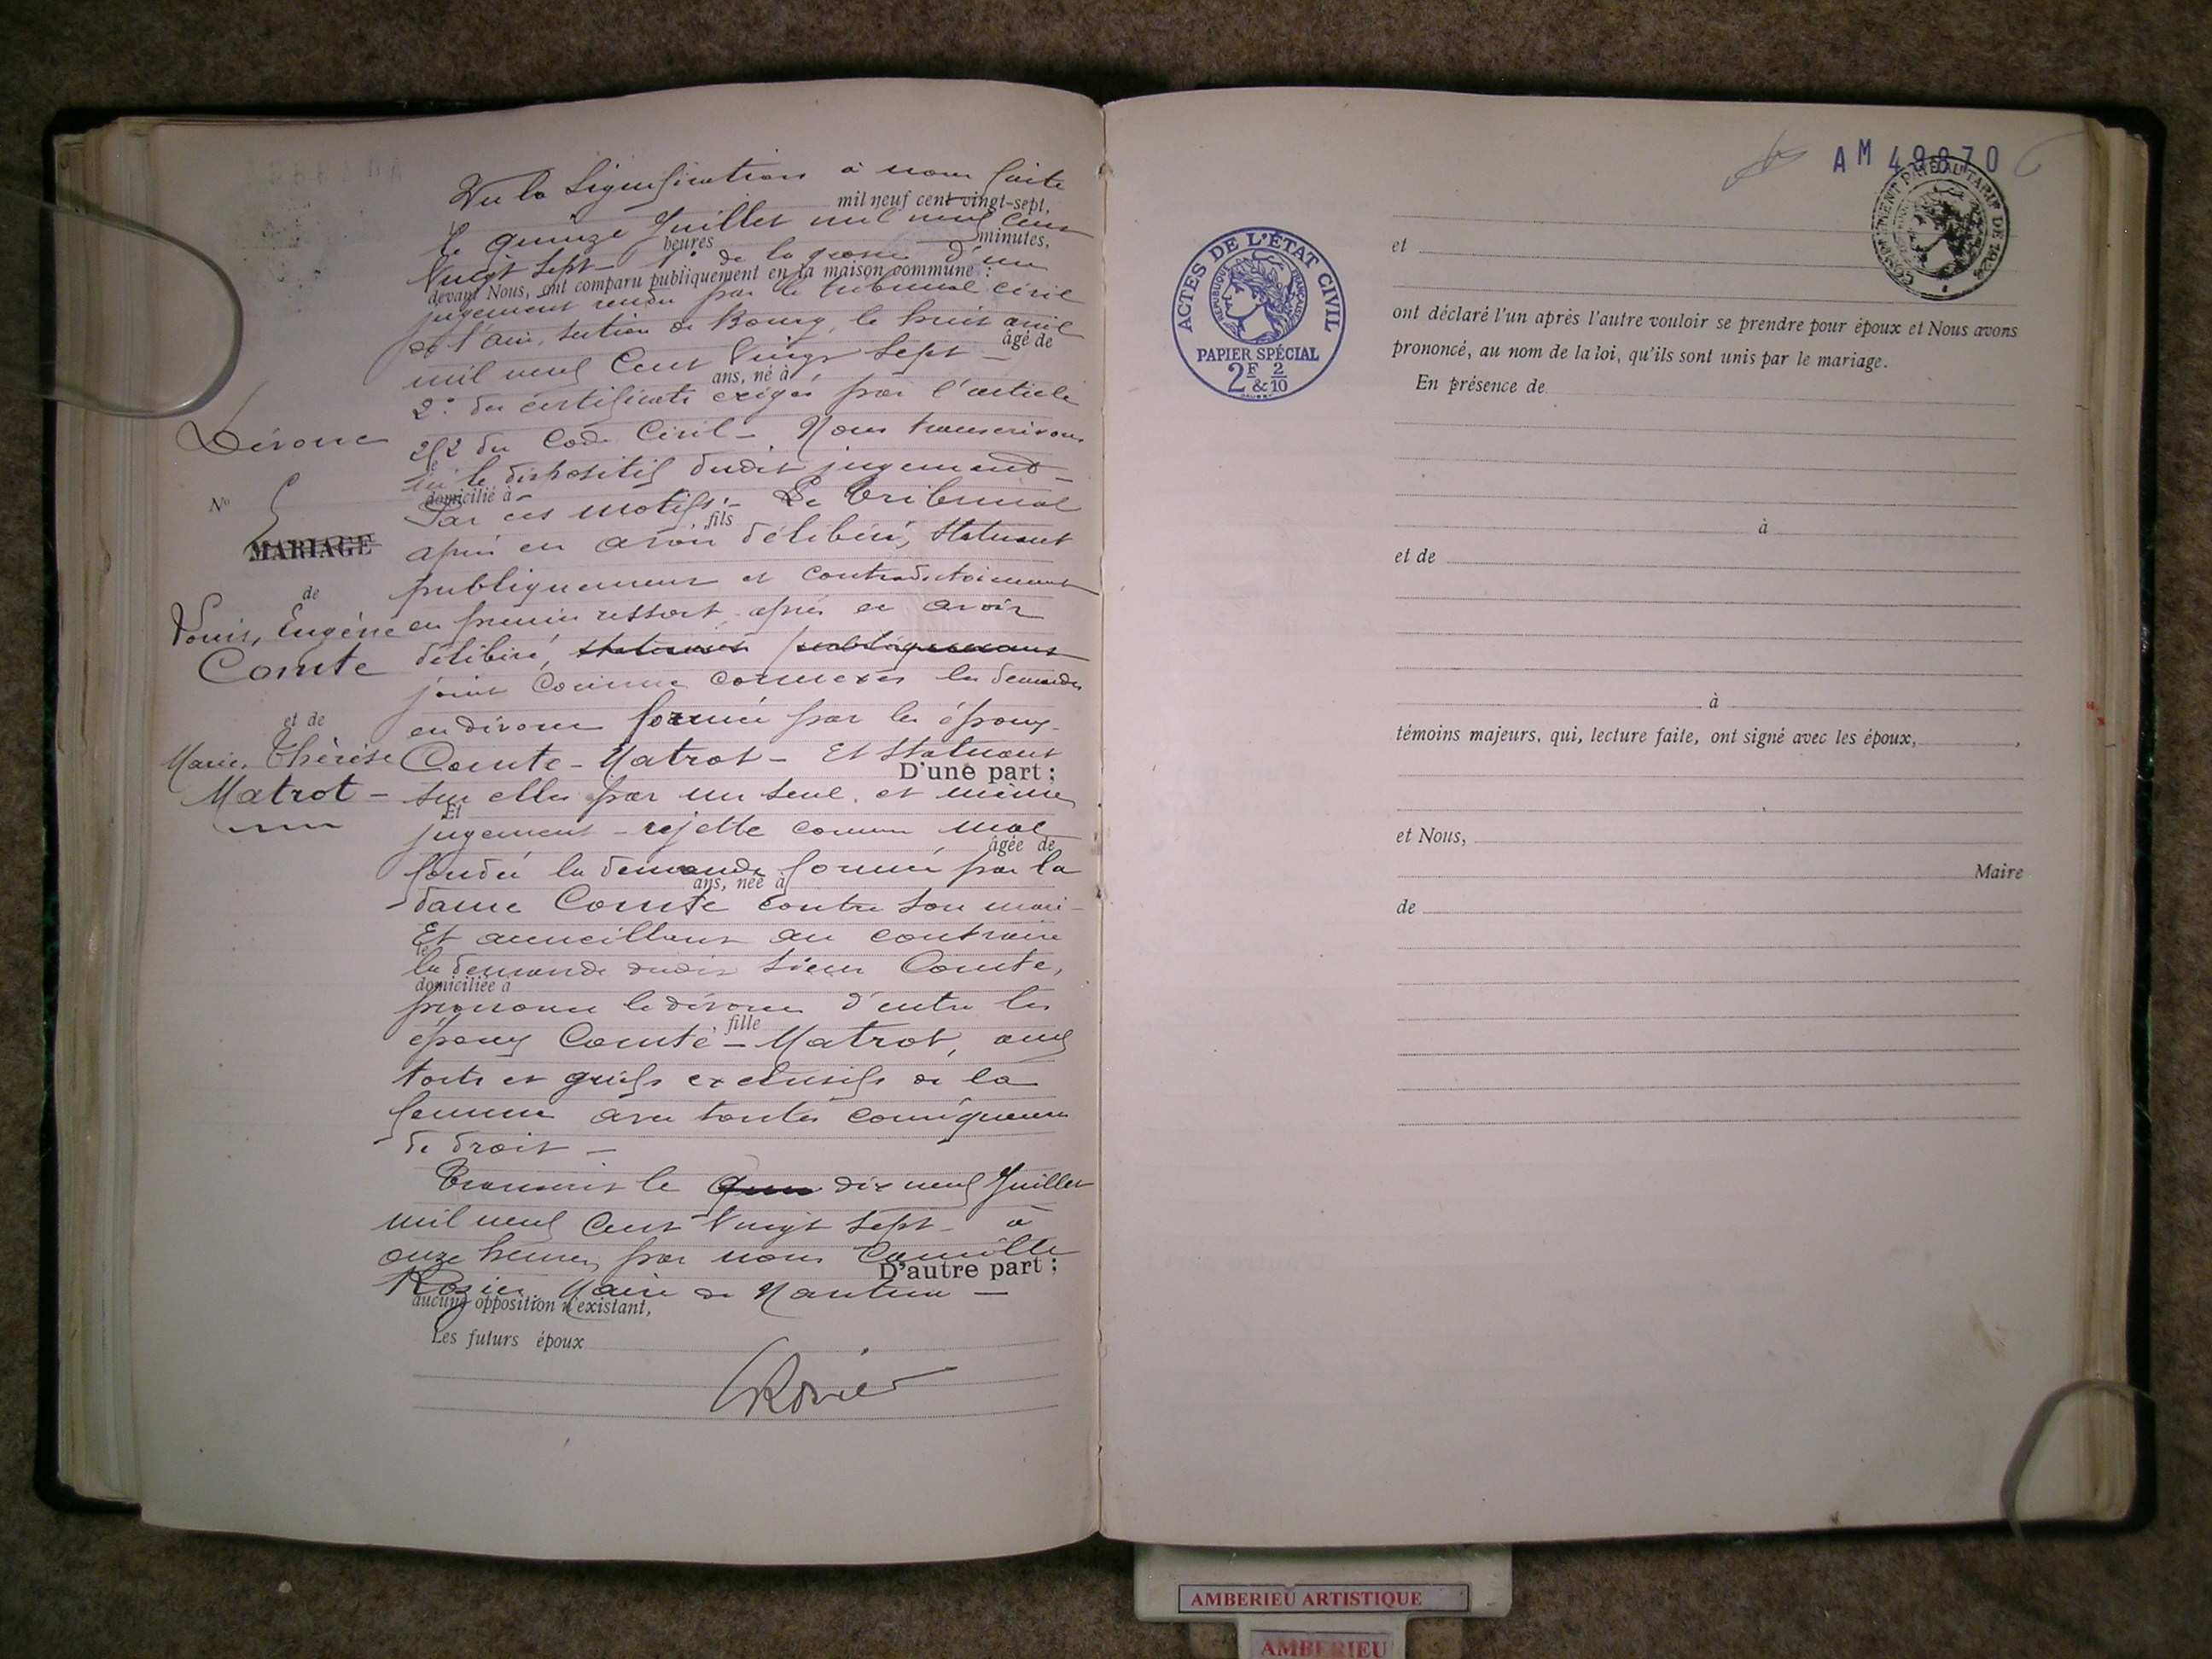 Vu la signification à nous faite
mil neuf cent vingt-sept,
le quinze Juillet mil neuf cent
heures minutes,
vingt sept - 1° de la grosse d'un
devant Nous, ont comparu publiquement en la maison commune :
jugement rendu par le tribunal civil
de l'Ain, section de Bourg, le huit avril
âgé de
mil neuf Cent Vingt Sept -
ans, né à
2° des certificats exigés par l'article
Divorce
252 du Code Civil - Nous transcrivons
le
ici le dispositif dudit jugement -
domicilié à
N°
Par ces motifs - Le Tribunal
, fils
MARIAGE
après en avoir délibéré, Statuant
publiquement et contradictoirement
de
Louis, Eugène
en premier ressort, après en avoir
Comte
délibéré, statuant publiquement
joint comme connexes les demandes
et de
en divorce formées par les époux
Marie, Thérèse
Comte - Matrot - Et Statuant
D'une part ;
Matrot -
sur elles par un seul et même
Et
jugement - rejette comme mal
âgée de
fondée la demande formée par la
ans, née à
dame Comte contre son mari -
Et accueillant au contraire
le
la demande dudit sieur Comte,
domiciliée à
prononce le divorce d'entre les
, fille
époux Comte - Matrot, aux
torts et griefs exclusifs de la
femme avec toutes conséquences
de droit -
Transcrit le dix neuf Juillet
mil neuf Cent Vingt Sept - à
onze heures, par nous Camille
D'autre part ;
Rozier Maire de Nantua -
aucune opposition n'existant,
Les futurs époux
CRozier
AM 49870
ACTES DE L'ÉTAT CIVIL
RÉPUBLIQUE FRANÇAISE
PAPIER SPÉCIAL
2F & 2/10
et
ont déclaré l'un après l'autre vouloir se prendre pour époux et Nous avons
prononcé, au nom de la loi, qu'ils sont unis par le mariage.
En présence de
à
et de
à
témoins majeurs, qui, lecture faite, ont signé avec les époux, ,
et Nous,
Maire
de
AMBERIEU ARTISTIQUE
AMBERIEU